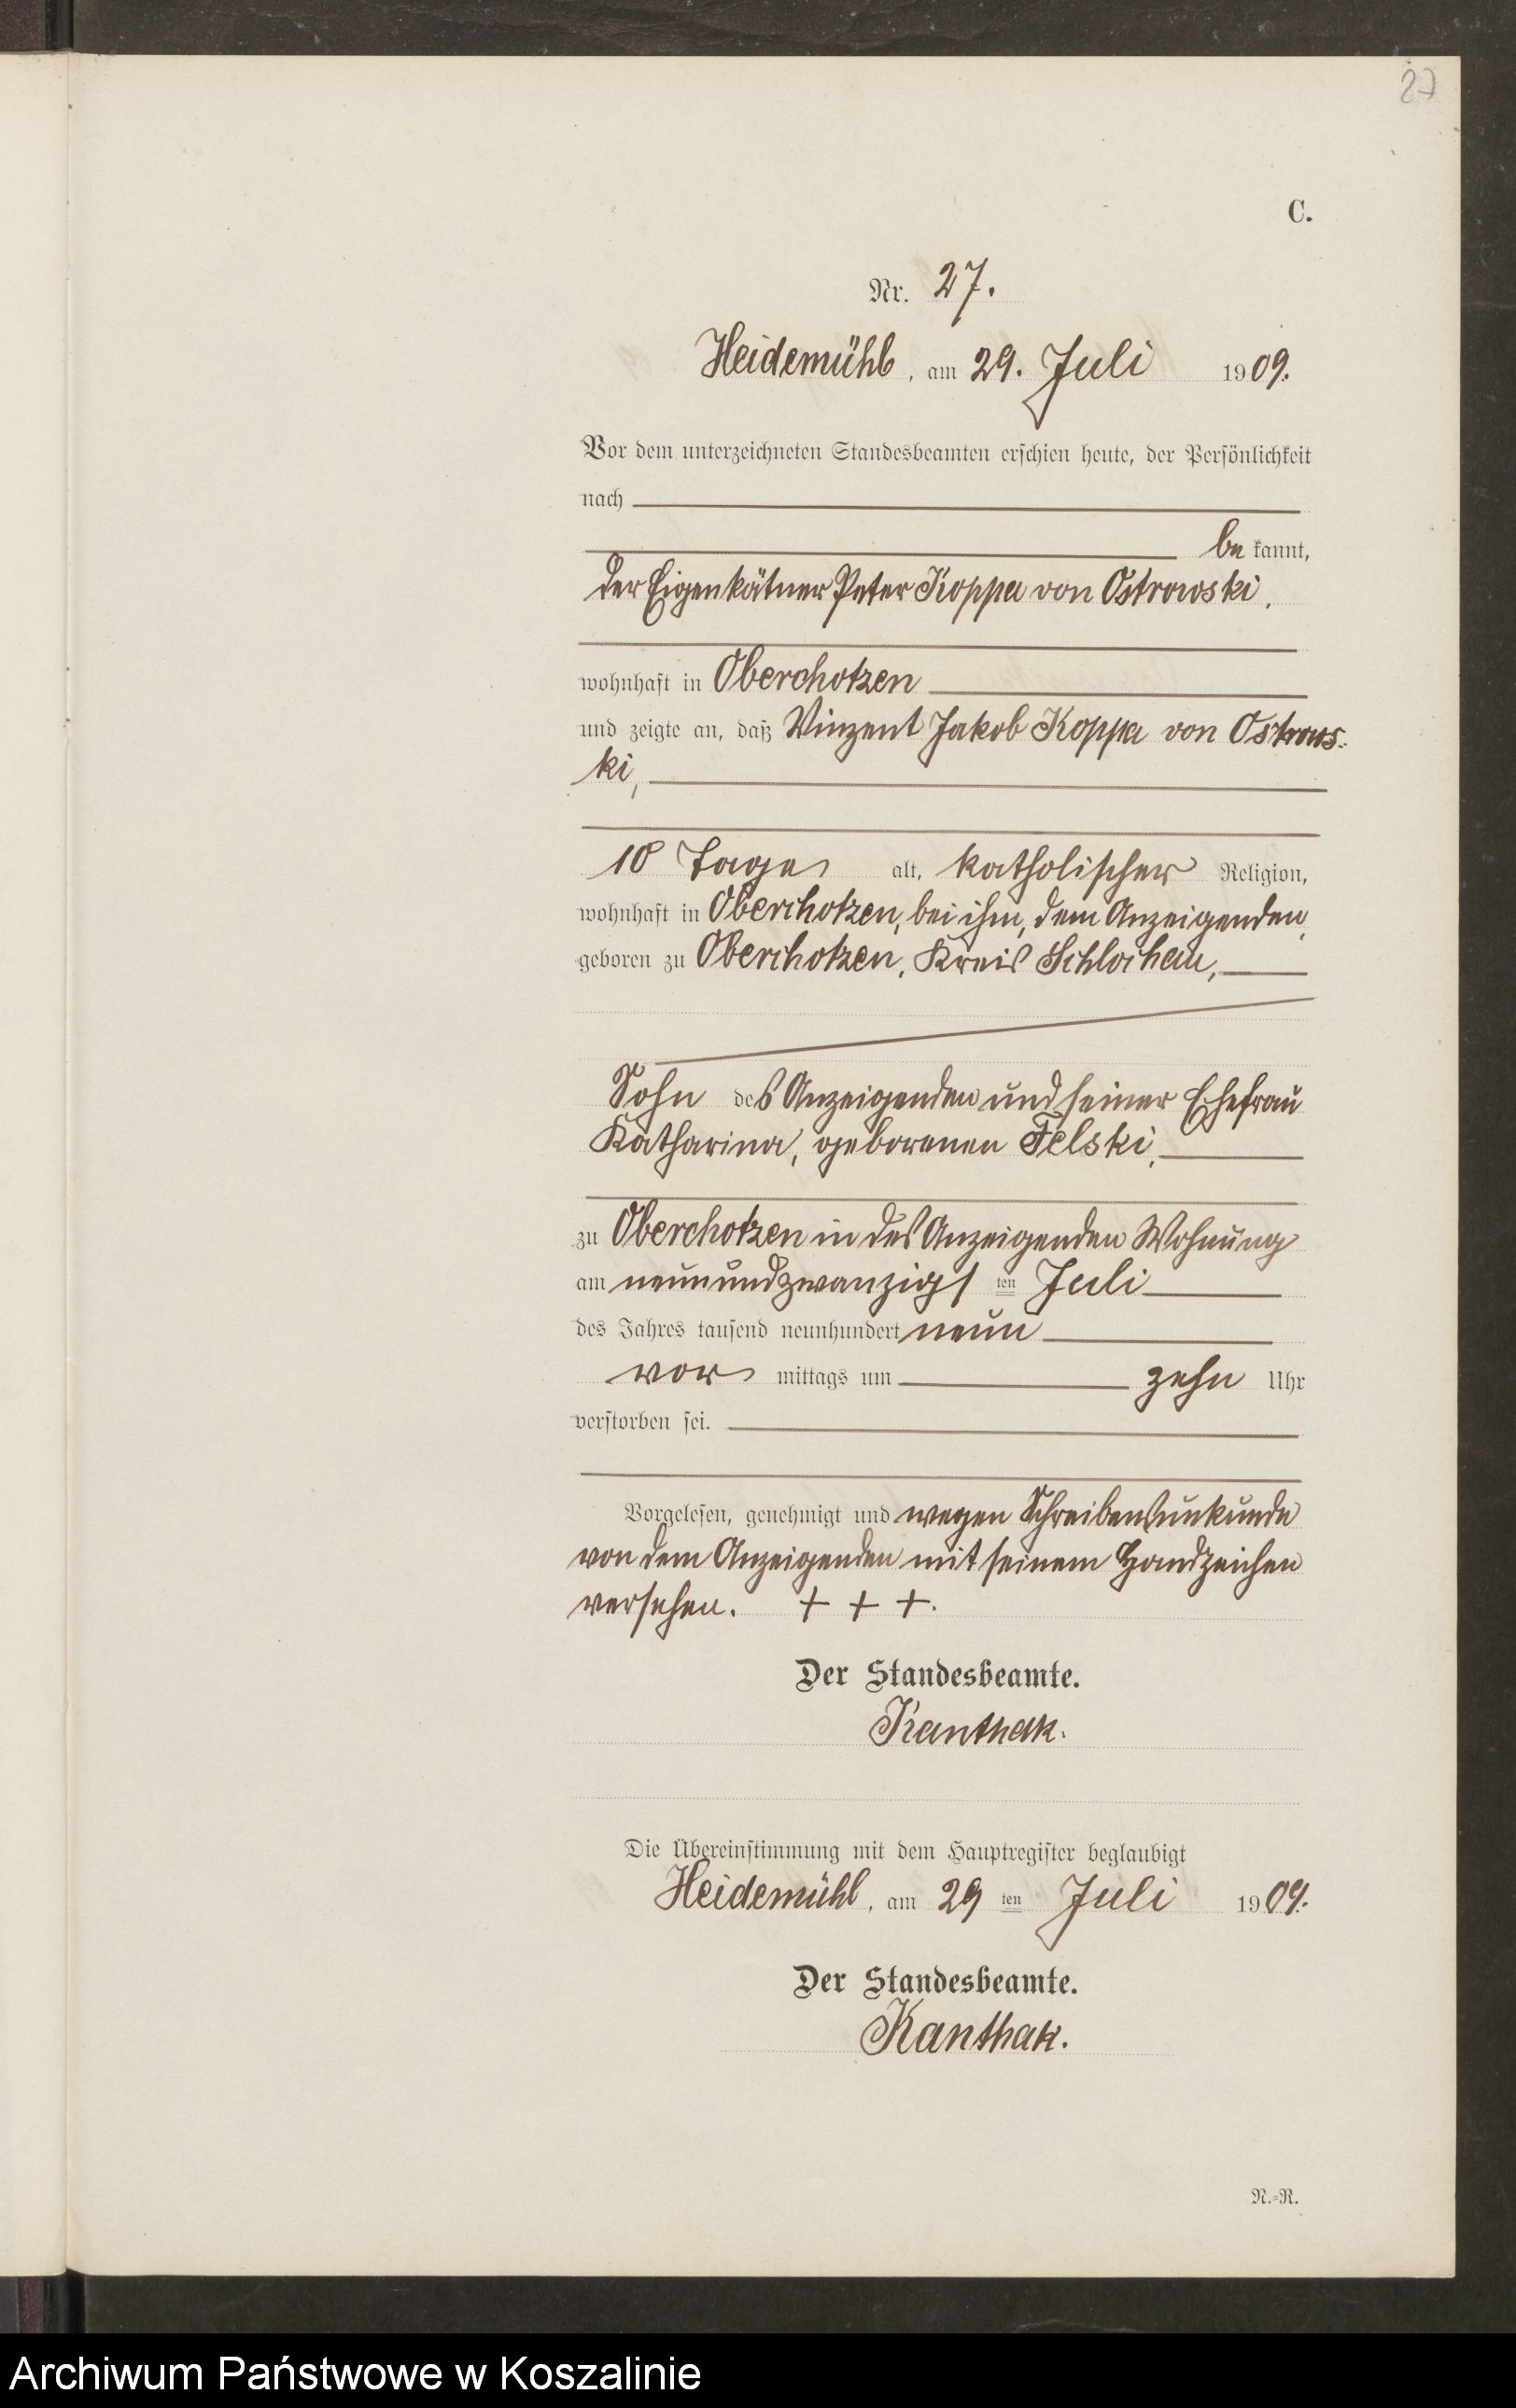 27
C.
Nr. 27.
Heidemühl, am 29. Juli 1909.
Vor dem unterzeichneten Standesbeamten erschien heute, der Persönlichkeit
nach
be kannt,
der Eigenkätner Peter Koppa von Ostrowski,
wohnhaft in Oberchotzen
und zeigte an, daß Vinzent Jakob Koppa von Ostrows-
ki,
10 Tage alt, katholischer Religion,
wohnhaft in Oberchotzen, bei ihm, dem Anzeigenden,
geboren zu Oberchotzen, Kreis Schlochau,
Sohn des Anzeigenden und seiner Ehefrau
Katharina, geborenen Felski,
zu Oberchotzen in des Anzeigenden Wohnung
am neunundzwanzigs ten Juli
des Jahres tausend neunhundert neun
vor mittags um zehn Uhr
verstorben sei.
Vorgelesen, genehmigt und wegen Schreibensunkunde
von dem Anzeigenden mit seinem Handzeichen
versehen. + + +.
Der Standesbeamte.
Kanthak.
Die Übereinstimmung mit dem Hauptregister beglaubigt
Heidemühl, am 29 ten Juli 1909.
Der Standesbeamte.
Kanthak.
N.=R.
Archiwum Państwowe w Koszalinie